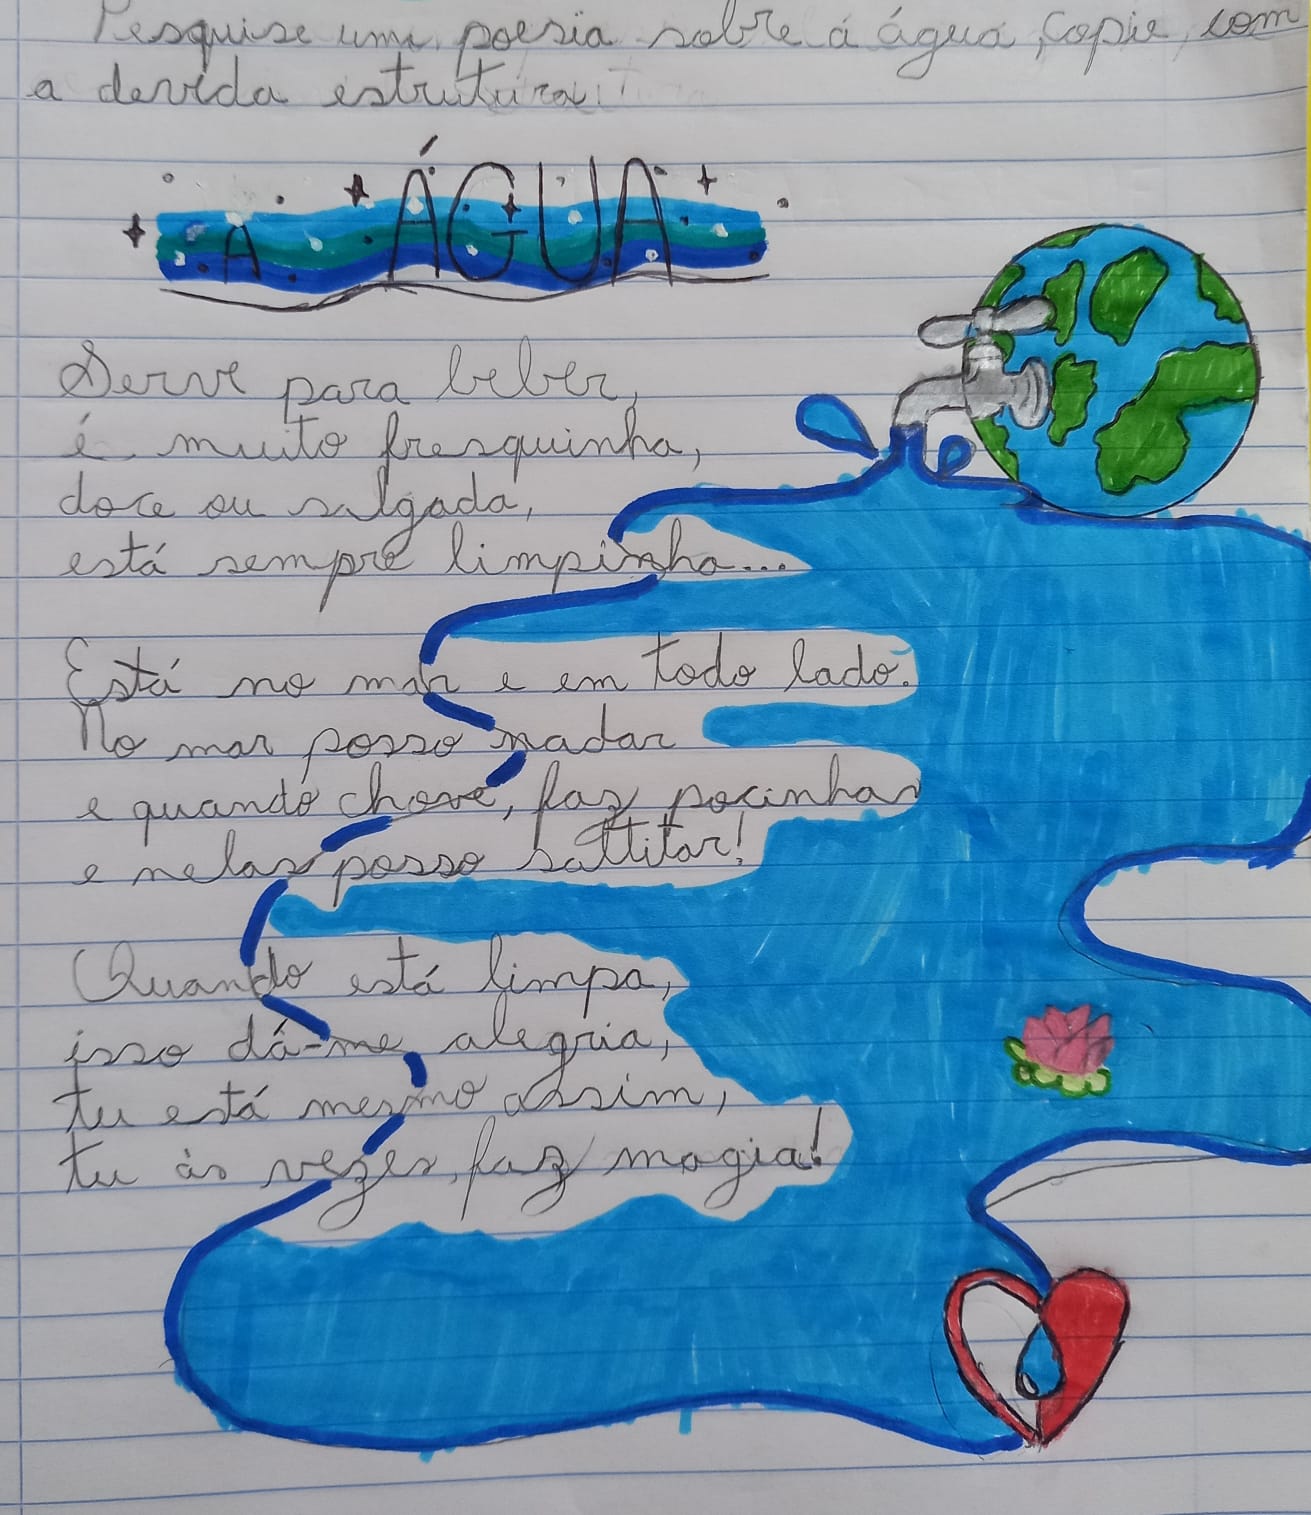 Pesquise uma poesia sobre á água, copie, com
a devida estrutura.
A ÁGUA
Serve para beber,
é muito fresquinha,
doce ou salgada,
está sempre limpinha...
Está no mar e em todo lado.
No mar posso nadar
e quando chove, faz pocinhas
e nelas posso saltitar!
Quando está limpa,
isso dá-me alegria,
tu está mesmo assim,
tu ás vezes, faz magia!